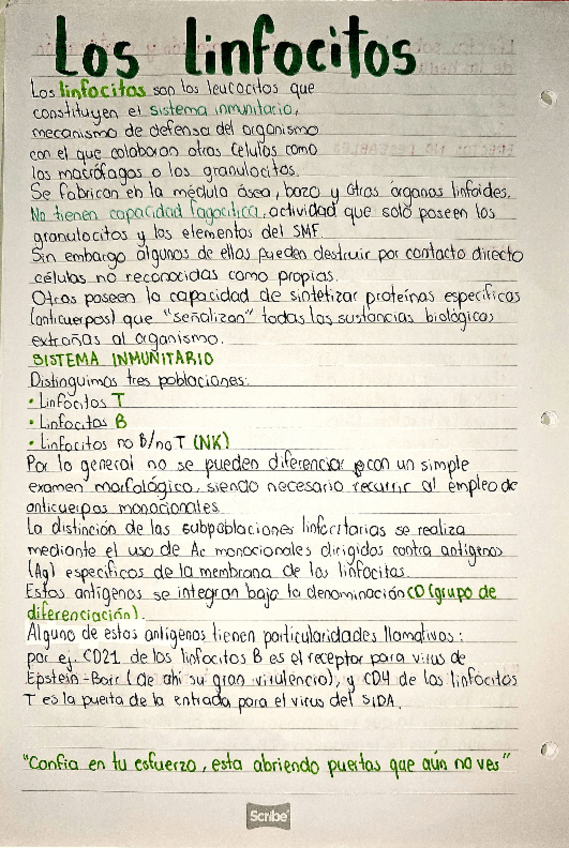 Los linfocitos
Los linfocitos son los leucocitos que
constituyen el sistema inmunitario,
mecanismo de defensa del organismo
con el que colaboran otras células como
los macrófagos o los granulocitos.
Se fabrican en la médula ósea, bazo y otras órganos linfoides.
No tienen capacidad fagocítica, actividad que solo poseen los
granulocitos y los elementos del SMF.
Sin embargo algunos de ellos pueden destruir por contacto directo
células no reconocidas como propias.
Otros poseen la capacidad de sintetizar proteínas especificas
(anticuerpos) que "señalizan" todas las sustancias biológicas
extrañas al organismo.
SISTEMA INMUNITARIO
Distinguimos tres poblaciones:
• Linfocitos T
• Linfocitos B
• Linfocitos no B/no T (NK)
Por lo general no se pueden diferenciar con un simple
examen morfológico, siendo necesario recurrir al empleo de
anticuerpos monocionales
La distinción de las subpoblaciones linfocitarias se realiza
mediante el uso de Ac monocionales dirigidos contra antígenos
(Ag) específicos de la membrana de los linfocitos.
Estos antígenos se integran bajo la denominación CD (grupo de
diferenciación).
Alguno de estos antígenos tienen particularidades llamativos:
por ej. CD21 de los linfocitos B es el receptor para virus de
Epstein-Barr (de ahí su gran virulencia), y CD4 de los linfocitos
T es la puerta de la entrada para el virus del SIDA.
"Confia en tu esfuerzo, esta abriendo puertas que aún no ves"
Scribe